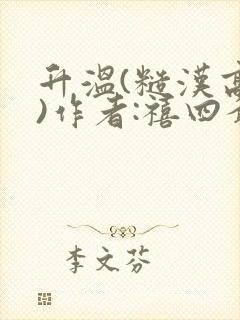 升溫(糙漢高
)作者:禧四
李文芬